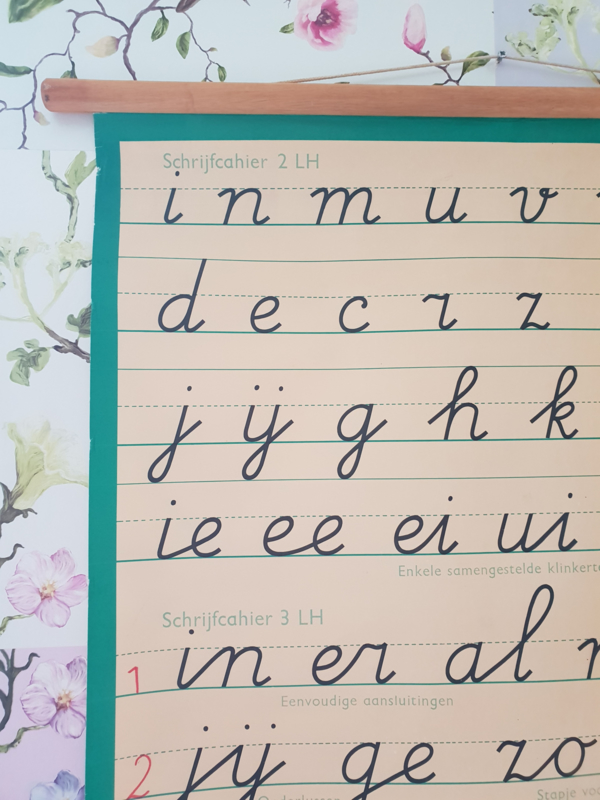 Schrijfcahier 2 LH
i n m u v
d e c r z
j ij g h k
ie ee ei ui
Enkele samengestelde
Schrijfcahier 3 LH
1 in er al
Eenvoudige aansluitingen
2 jij ge zo